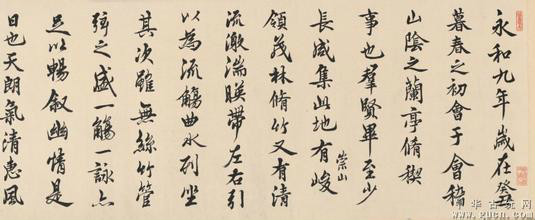 永和九年歲在癸丑
暮春之初會于會稽
山陰之蘭亭脩稧
事也羣賢畢至少
長咸集此地有崇山峻
領茂林脩竹又有清
流激湍暎帶左右引
以為流觴曲水列坐
其次雖無絲竹管
弦之盛一觴一詠亦
足以暢敘幽情是
日也天朗氣清惠風
中华古玩网